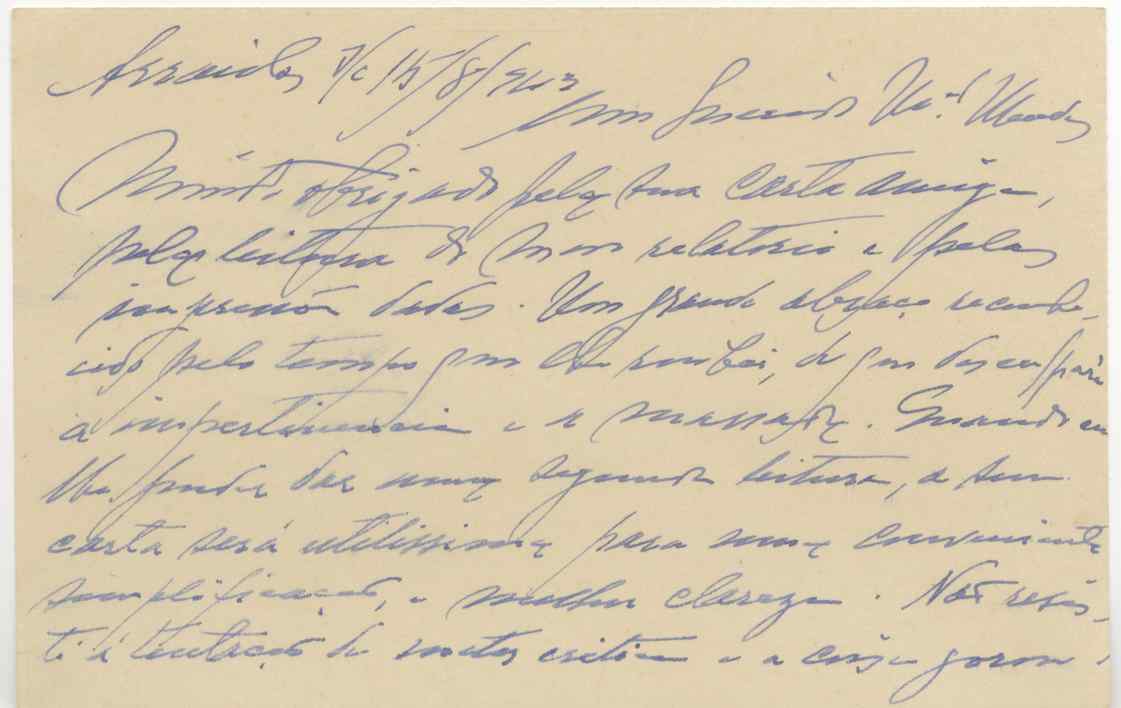 Arraiolos, s/c 15/8/943
Meu Querido Am.º Mendes
Muito obrigado pela sua carta amiga,
pela leitura do meu relatorio e pelas
impressões dadas. Um grande abraço reconhe-
cido pelo tempo que lhe roubei, de que desculpará
a impertinencia e a massada. Quando eu
lhe puder dar uma segunda leitura, a sua
carta será utilissima para uma conveniente
simplificação, e melhor clareza. Não resis-
ti á tentação de meter critica e a coisa gorou